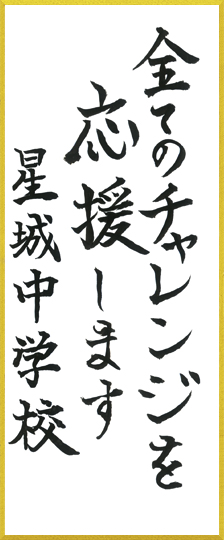 全てのチャレンジを
応援します
星城中学校